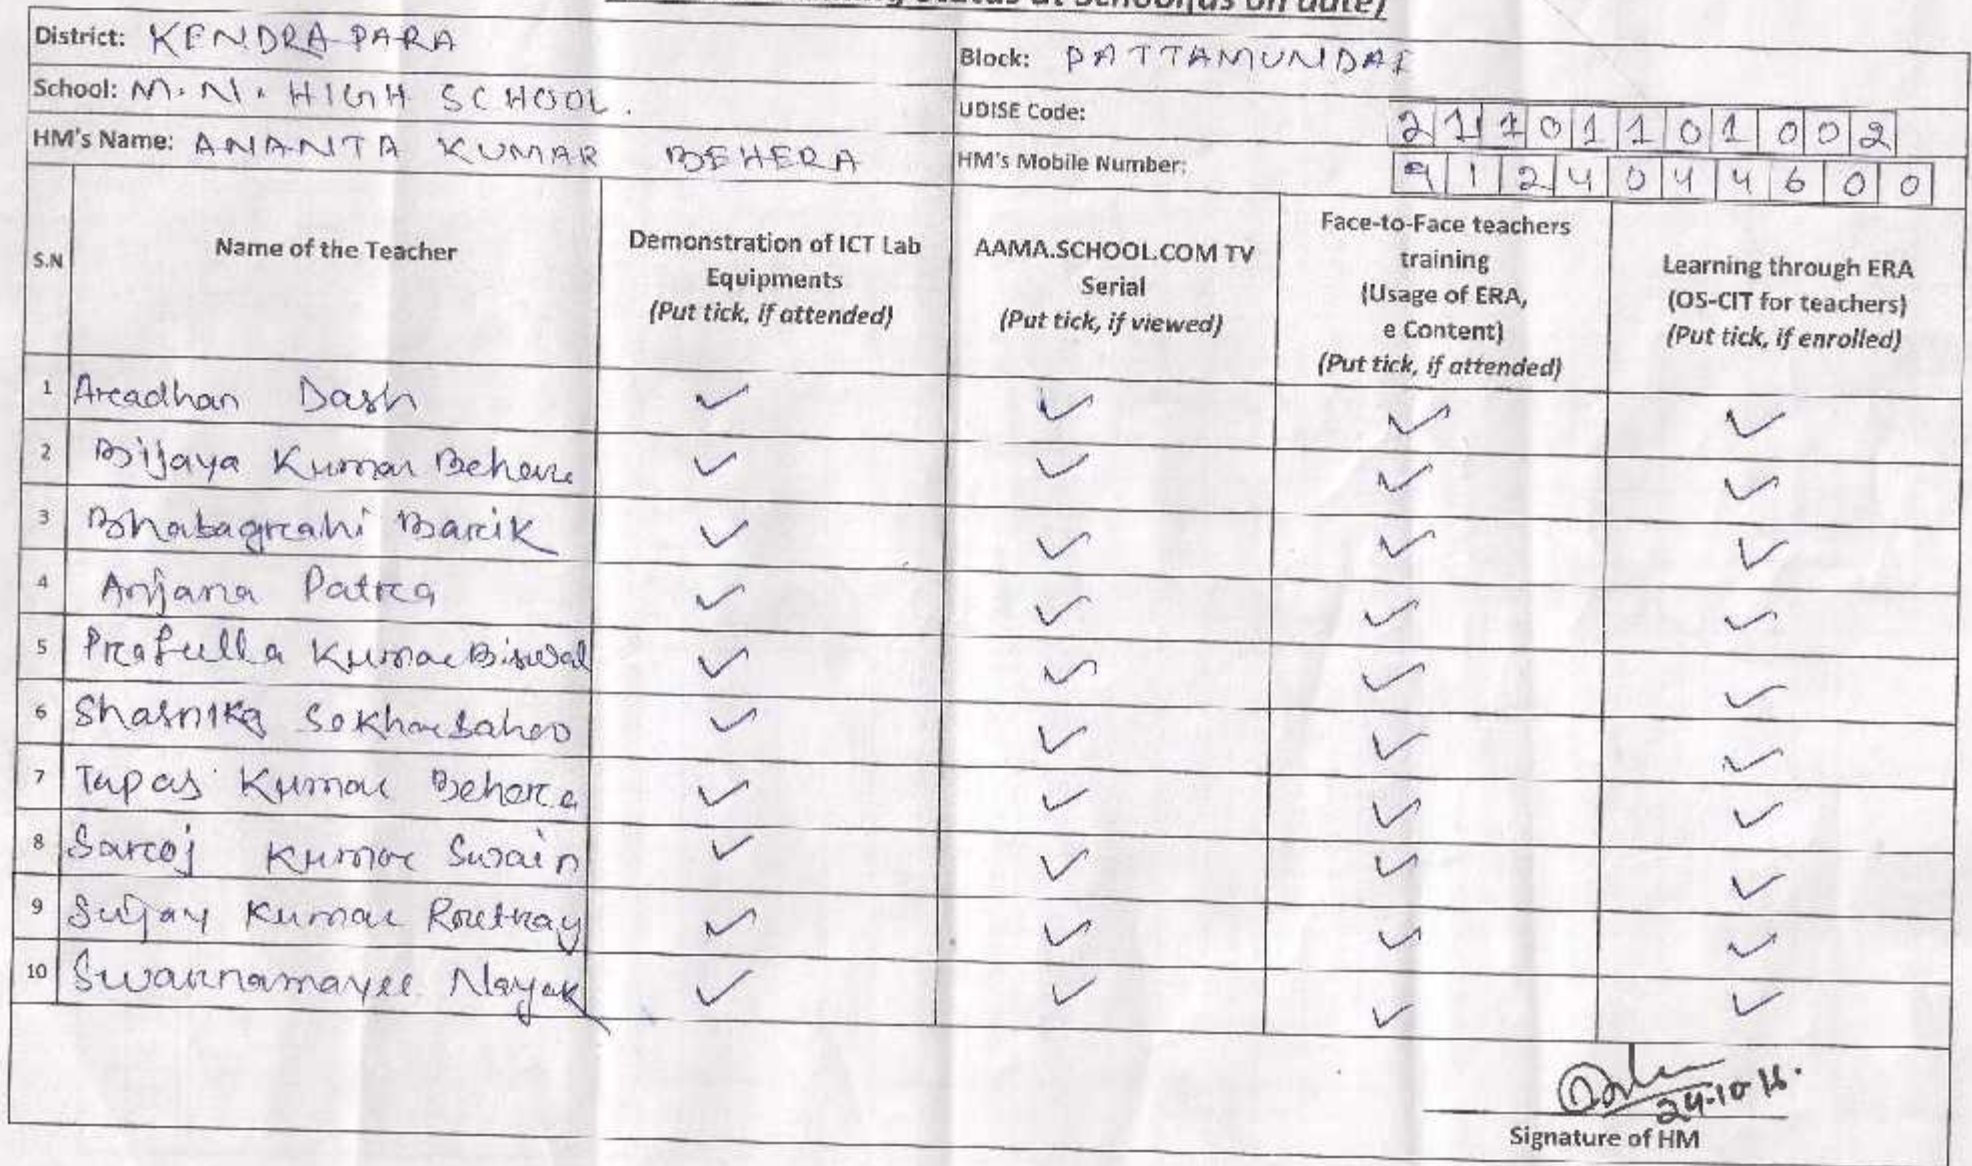 Status at School(as on date)
District: KENDRAPARA
Block: PATTAMUNDAI
School: M.N. HIGH SCHOOL.
UDISE Code: 21101101002
HM's Name: ANANTA KUMAR BEHERA
HM's Mobile Number: 9124044600
S.N
Name of the Teacher
Demonstration of ICT Lab
Equipments
(Put tick, if attended)
AAMA.SCHOOL.COM TV
Serial
(Put tick, if viewed)
Face-to-Face teachers
training
(Usage of ERA,
e Content)
(Put tick, if attended)
Learning through ERA
(OS-CIT for teachers)
(Put tick, if enrolled)
1 Arcadhan Dash ✓ ✓ ✓ ✓
2 Bijaya Kumar Behera ✓ ✓ ✓ ✓
3 Bhabagrcahi Barcik ✓ ✓ ✓ ✓
4 Anjana Patrca ✓ ✓ ✓ ✓
5 Prcafulla Kumar Biswal ✓ ✓ ✓ ✓
6 Shasnika Sekhar Sahoo ✓ ✓ ✓ ✓
7 Tapas Kumar Beherca ✓ ✓ ✓ ✓
8 Sarcoj Kumar Swain ✓ ✓ ✓ ✓
9 Sujay Kumar Routray ✓ ✓ ✓ ✓
10 Swarnamayee Nayak ✓ ✓ ✓ ✓
24-10-16.
Signature of HM